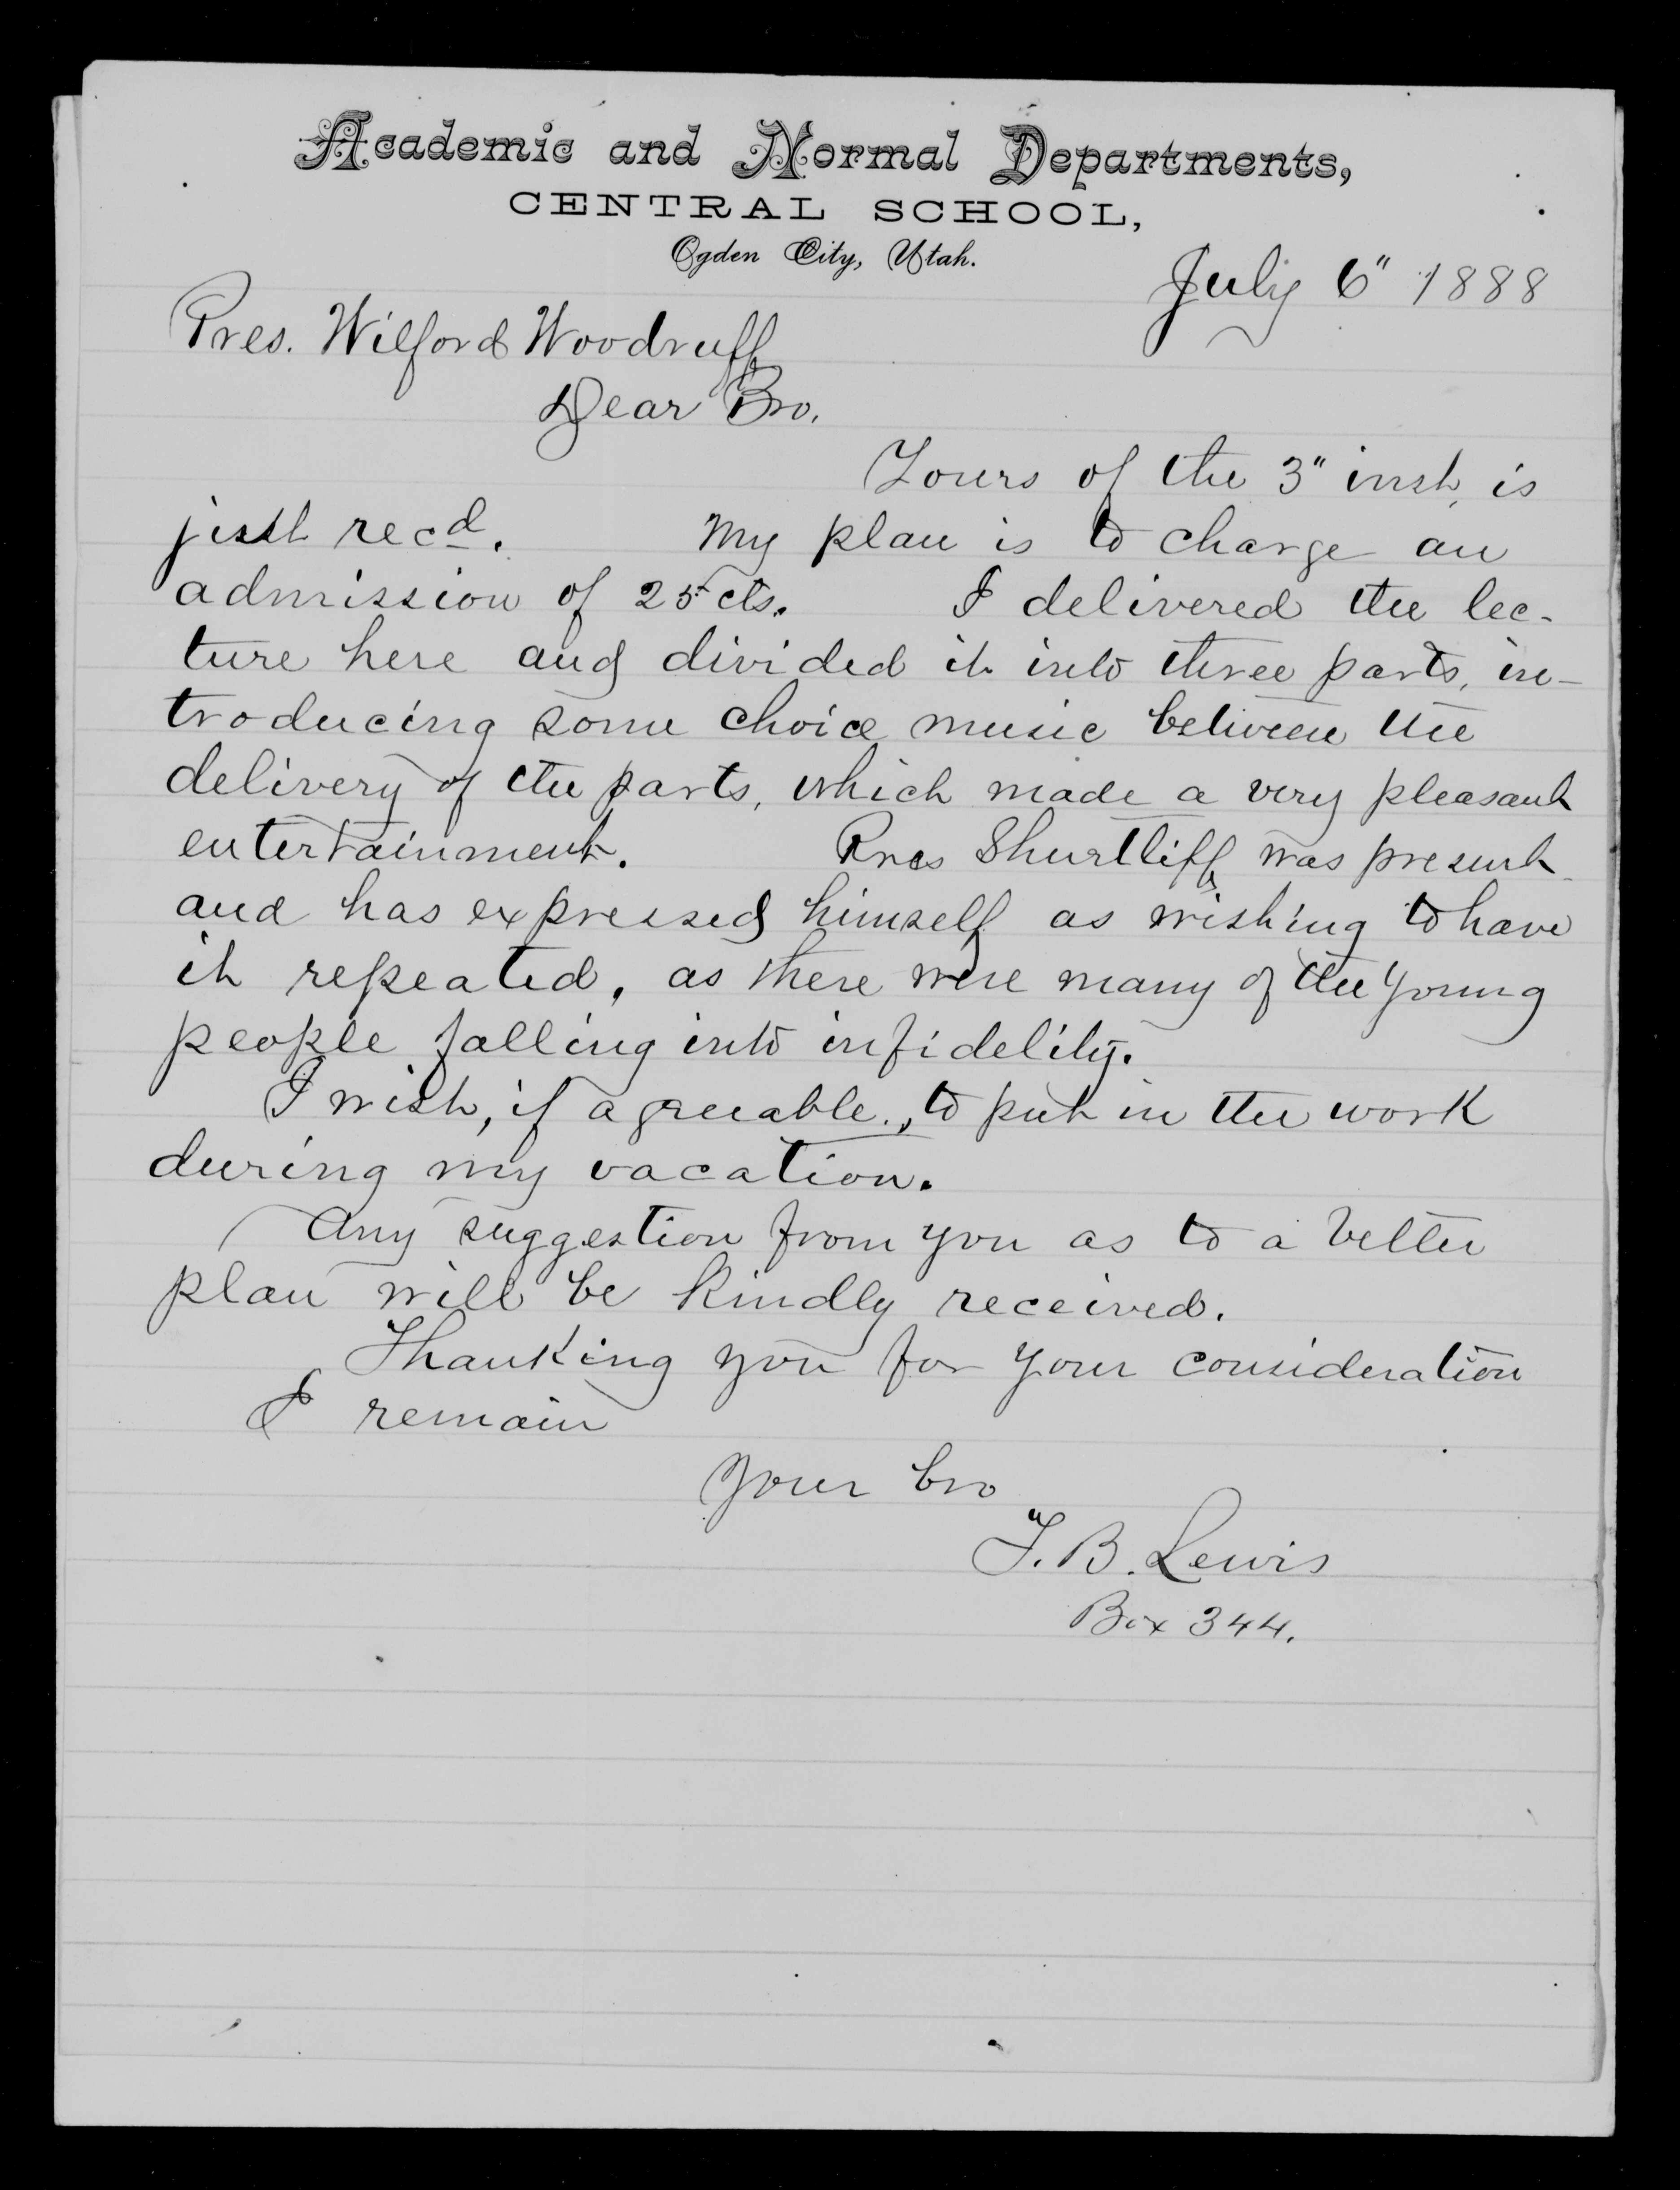 Academic and Normal Departments,
CENTRAL SCHOOL,
Ogden City, Utah.
July 6" 1888
Pres. Wilford Woodruff
Dear Bro.
Yours of the 3" inst, is
just recd. My plan is to charge an
admission of 25 cts. I delivered the lec-
ture here and divided it into three parts, in-
troducing some choice music between the
delivery of the parts, which made a very pleasant
entertainment. Pres Shurtliff was present
and has expressed himself as wishing to have
it repeated, as there were many of the young
people falling into infidelity.
I wish, if agreeable, to put in the work
during my vacation.
Any suggestion from you as to a better
plan will be kindly received.
Thanking you for your consideration
I remain
Your bro
T. B. Lewis
Box 344.